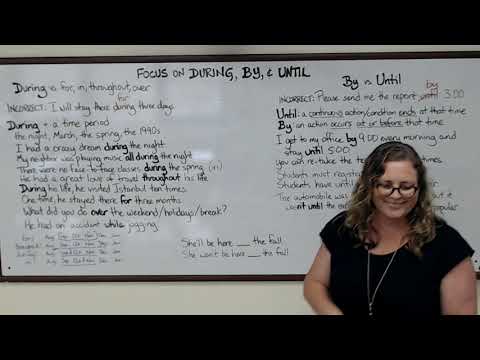 FOCUS ON DURING, BY, & UNTIL
During vs for, in, throughout, over
for
INCORRECT: I will stay there during three days.
During + a time period
the night, March, the spring, the 1990s
I had a crazy dream during the night.
My neighbor was playing music all during the night.
There were no face-to-face classes during the spring. (in)
He had a great love of travel throughout his life.
During his life, he visited Istanbul ten times.
One time, he stayed there for three months.
What did you do over the weekend/holidays/break?
He had an accident while jogging.
She'll be here ___ the fall.
She won't be here ___ the fall.
By vs Until
by
INCORRECT: Please send me the report until 3:00
Until: a continuing action/condition ends at that time
By: an action occurs at or before that time
I get to my office by 9:00 every morning and
stay until 5:00.
you can re-take the times.
Students must
Students have until
The automobile was but it
wasn't until the popular